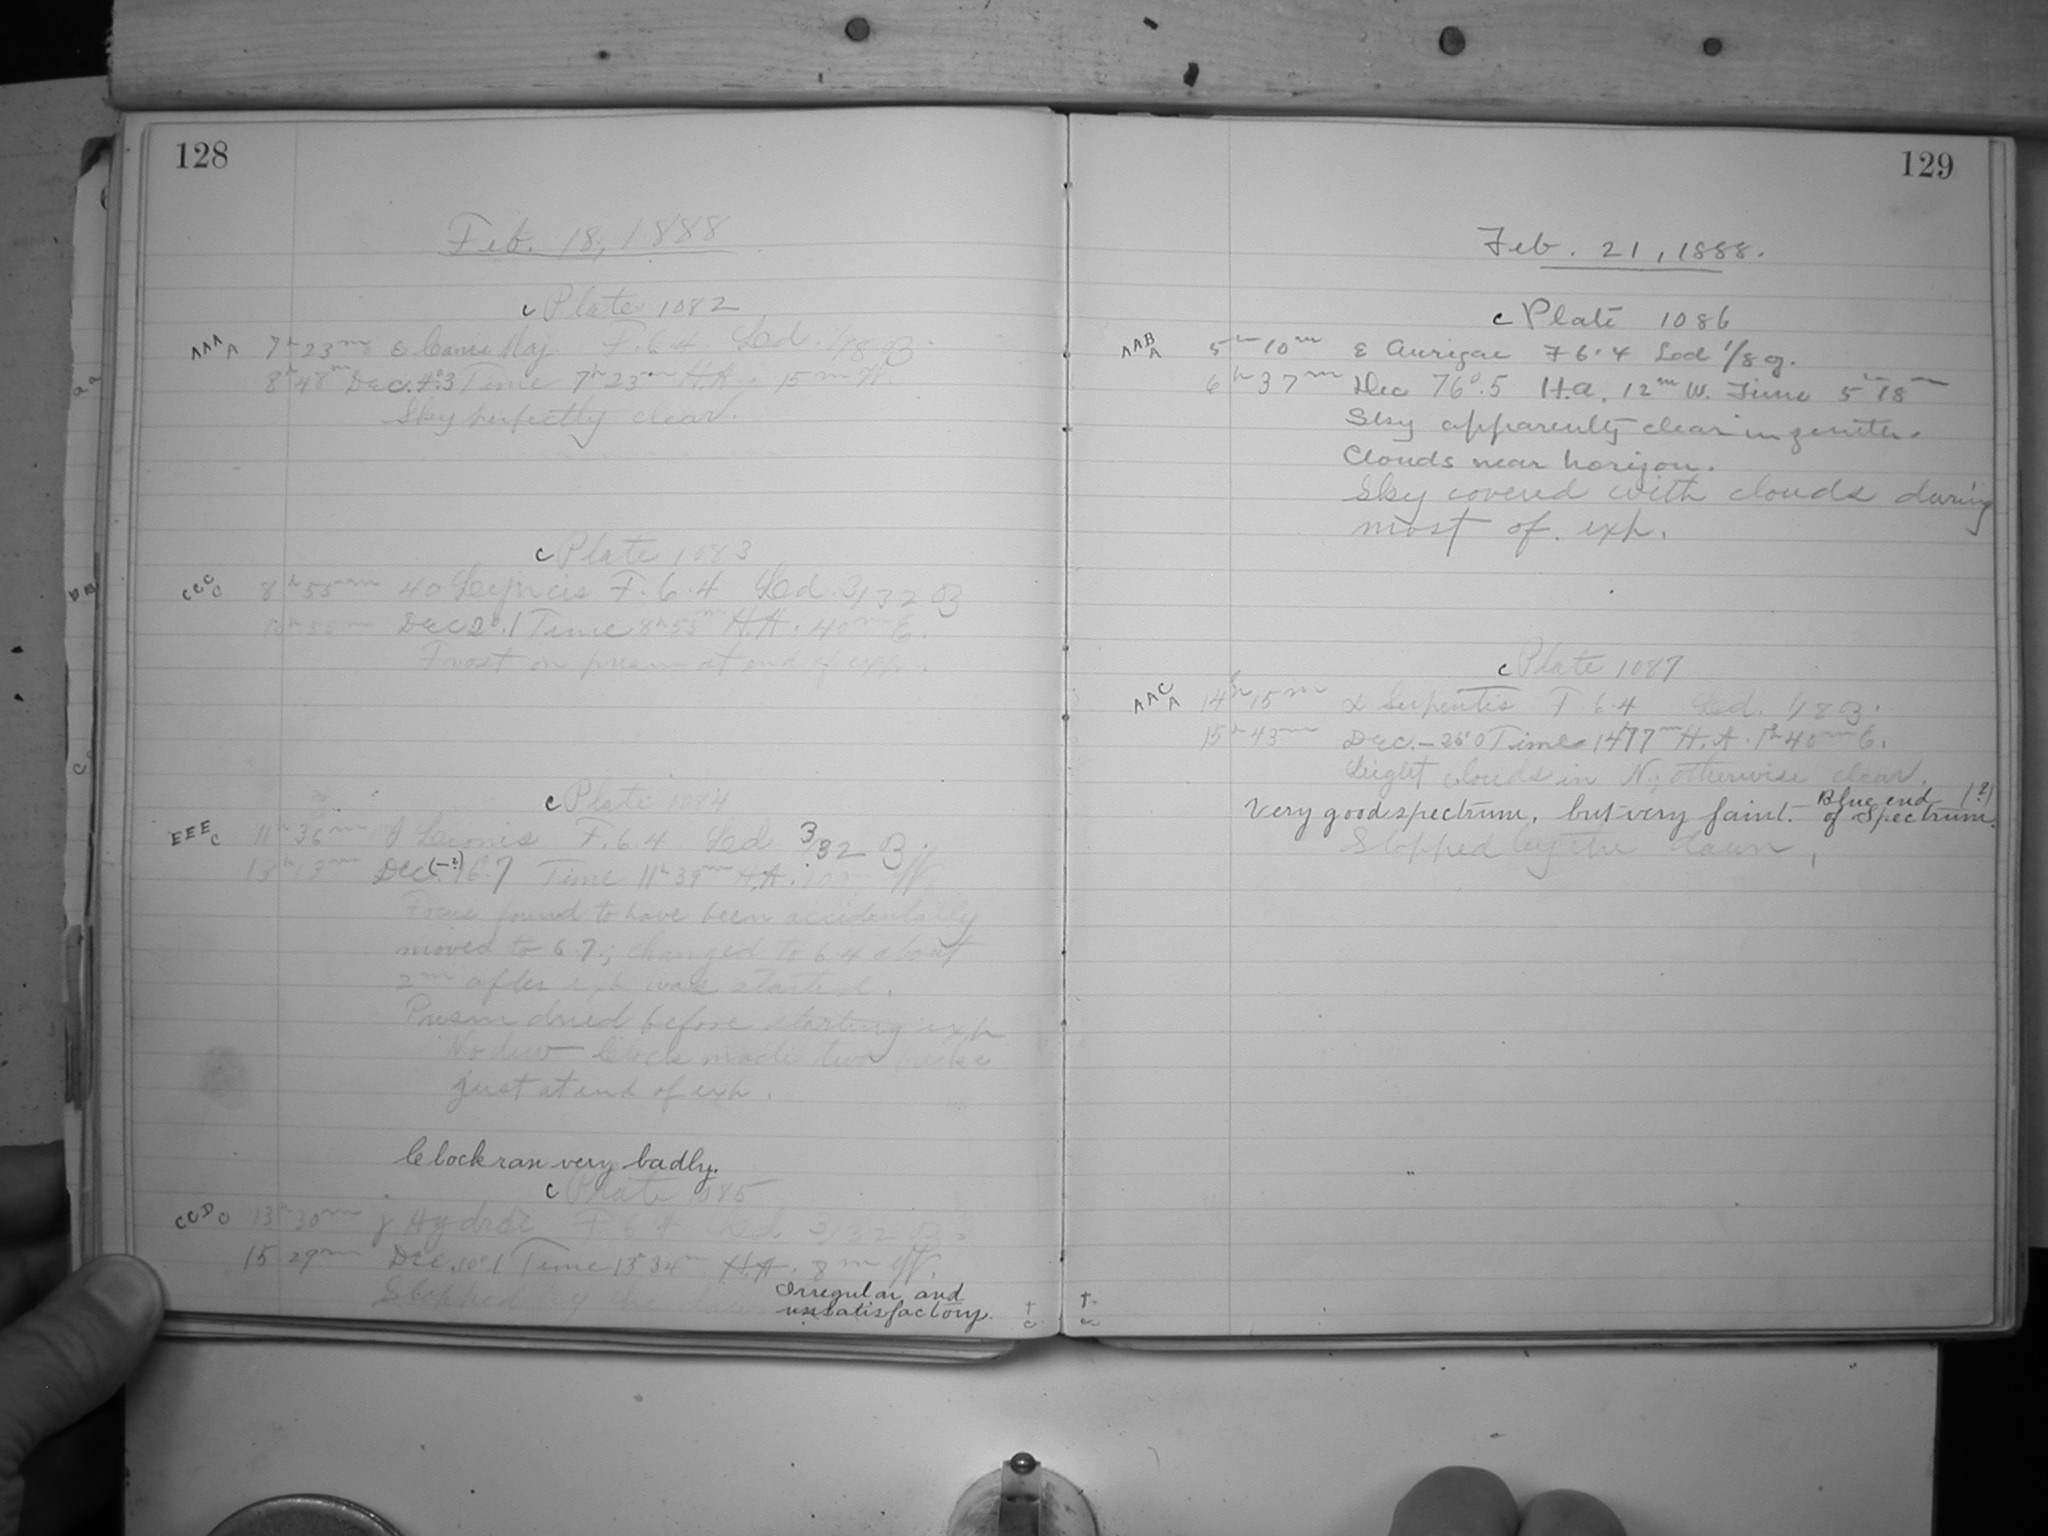 128
Feb. 18, 1888
c Plate 1082
AAA A 7h 23m ε Canis Maj. F. 6.4 Led. 1/8 B.
8h 48m Dec. Time 7h 23m H.A. 15m W.
Sky perfectly clear.
c Plate 1083
CCC C 8h 55m 40 Lyncis F. 6.4 Led. 3/32 B
Dec 20.1 Time 8h 53m H.A. 40m E.
Frost on prism at end of exp.
c Plate 1084
EEE C 11h 36m Leonis F. 6.4 Led 3/32 B.
13h 13m Dec (-?) 16.7 Time 11h 39m H.A. 10m W.
Focus found to have been accidentally
moved to 6.7; changed to 6.4 about
2m after exp. was started.
Prism dried before starting exp
No dew — Clock made two
just at end of exp.
Clock ran very badly.
c Plate 1085
CCD C 13h 30m Hydrae F. 6.4 Led 3/32 B.
15 29m Dec. 10.1 Time 13h 34m H.A. 8m W.
Stopped by the dawn
Irregular and
unsatisfactory.
129
Feb. 21, 1888.
c Plate 1086
AAB A 5h 10m ε Aurigae F 6.4 Led 1/8 B.
6h 37m Dec 76°.5 H.A. 12m W. Time 5h 18m
Sky apparently clear in zenith.
Clouds near horizon.
Sky covered with clouds during
most of exp.
c Plate 1087
AAC A 14h 15m α Serpentis F 6.4 Led. 1/8 B.
15h 43m Dec. -26.0 Time 14h 17m H.A. 1h 40m E.
Light clouds in N.; otherwise clear.
Very good spectrum, but very faint. Blue end (?)
of spectrum.
Stopped by the dawn.